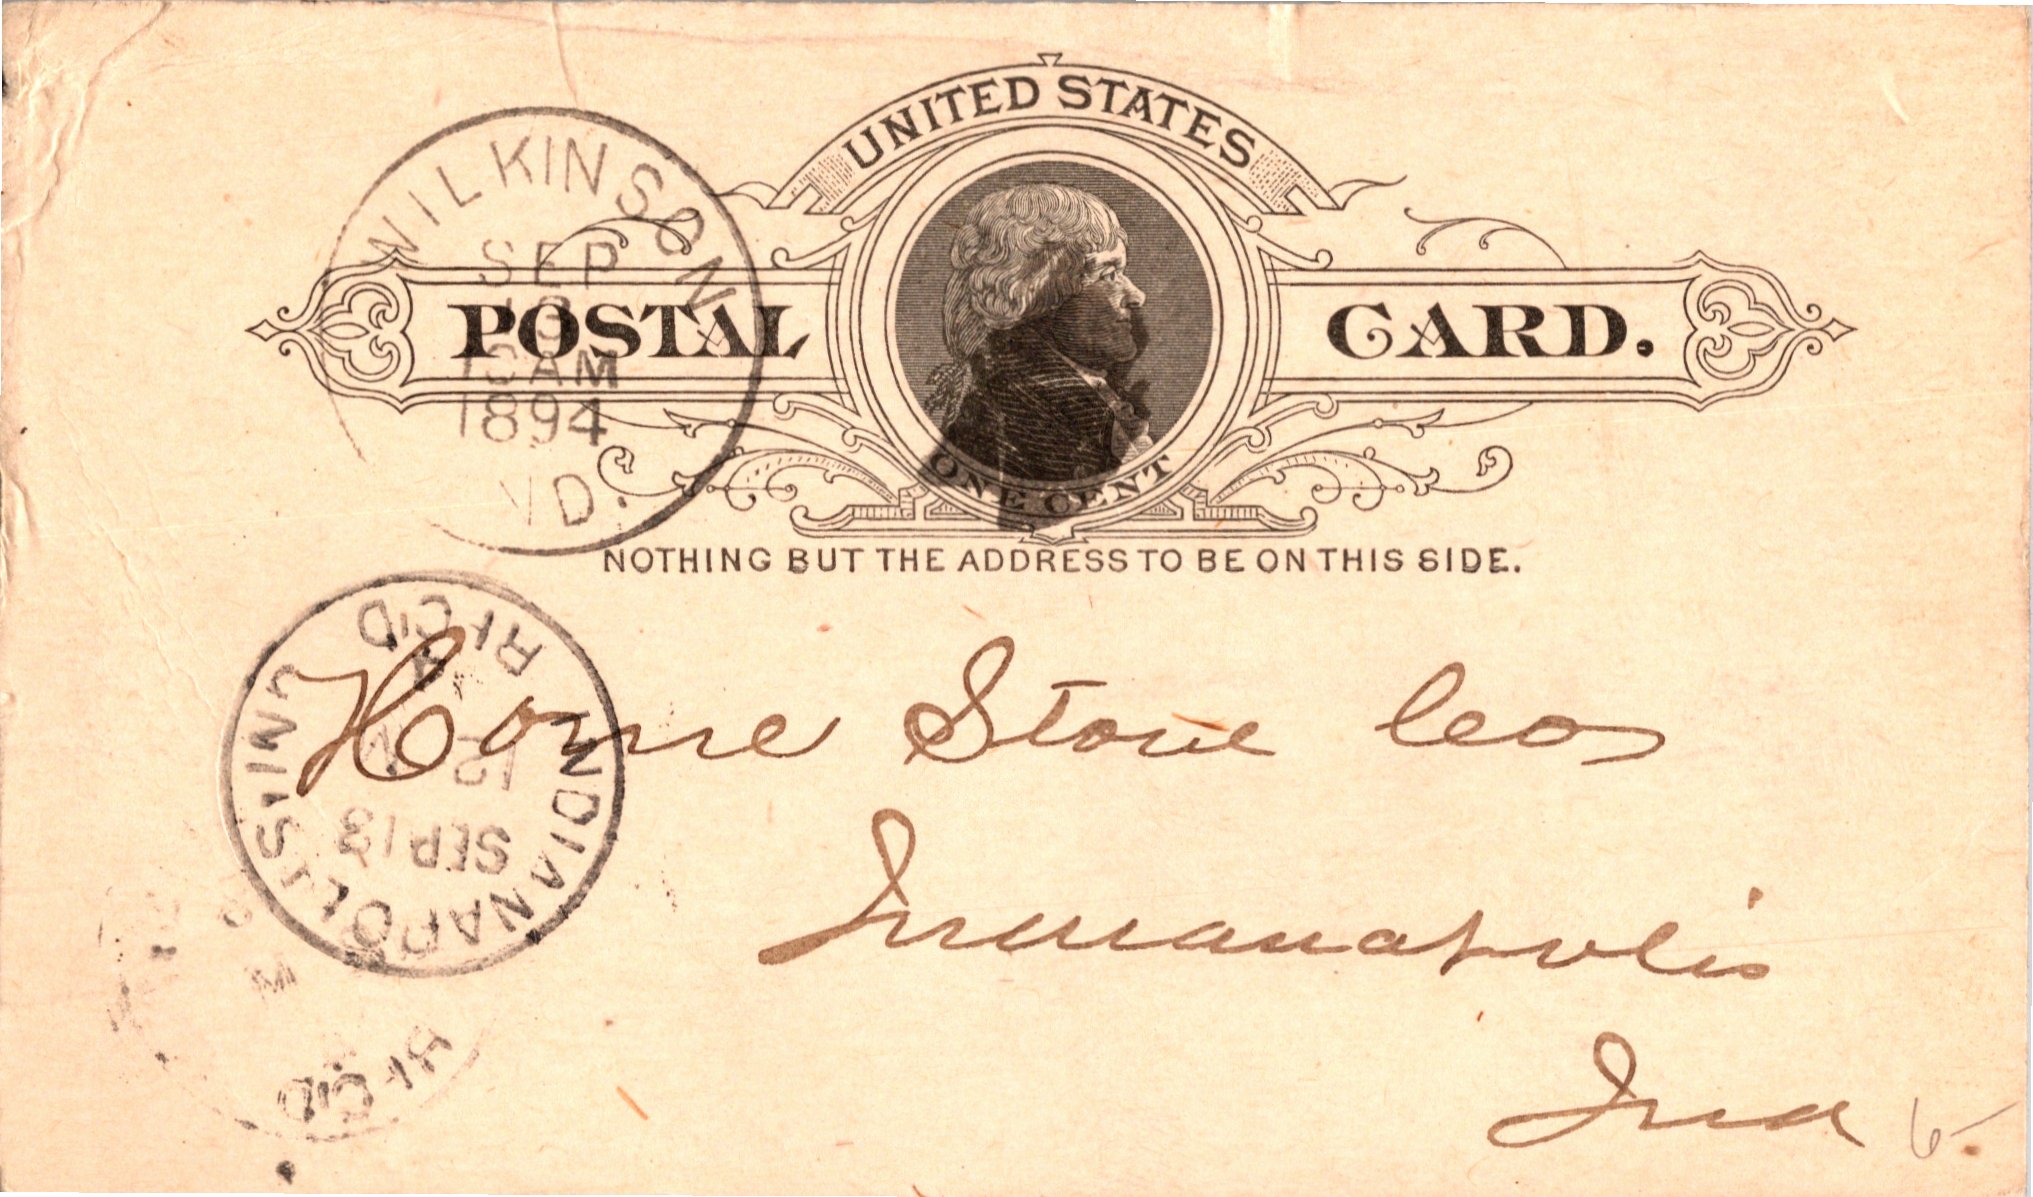 UNITED STATES
POSTAL CARD.
ONE CENT
NOTHING BUT THE ADDRESS TO BE ON THIS SIDE.
WILKINSON
SEP
13
10AM
1894
IND.
REC'D
12 M
SEP 13
INDIANAPOLIS, IND
Home Stove Co
Indianapolis
Ind
M
REC'D